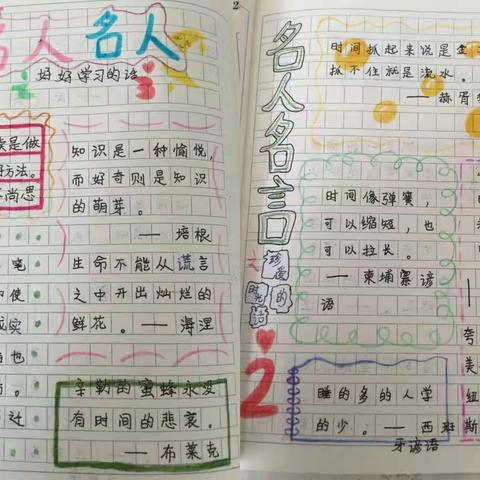 名人名人
好好学习的话
读是做
方法。
尚思
笔
使
实
也
过
知识是一种愉悦，
而好奇则是知识
的萌芽。
——培根
生命不能从谎言
之中开出灿烂的
鲜花。——海涅
辛勤的蜜蜂永没
有时间的悲哀。
——布莱克
2
名人名言
之珍爱的
时光
语
2
时间抓起来说是金
抓不住就是流水。
——赫胥
时间像弹簧，
可以缩短，也
可以拉长。
——柬埔寨谚
语
睡的多的人学
的少。——西班
牙谚语
夸
美
纽
斯